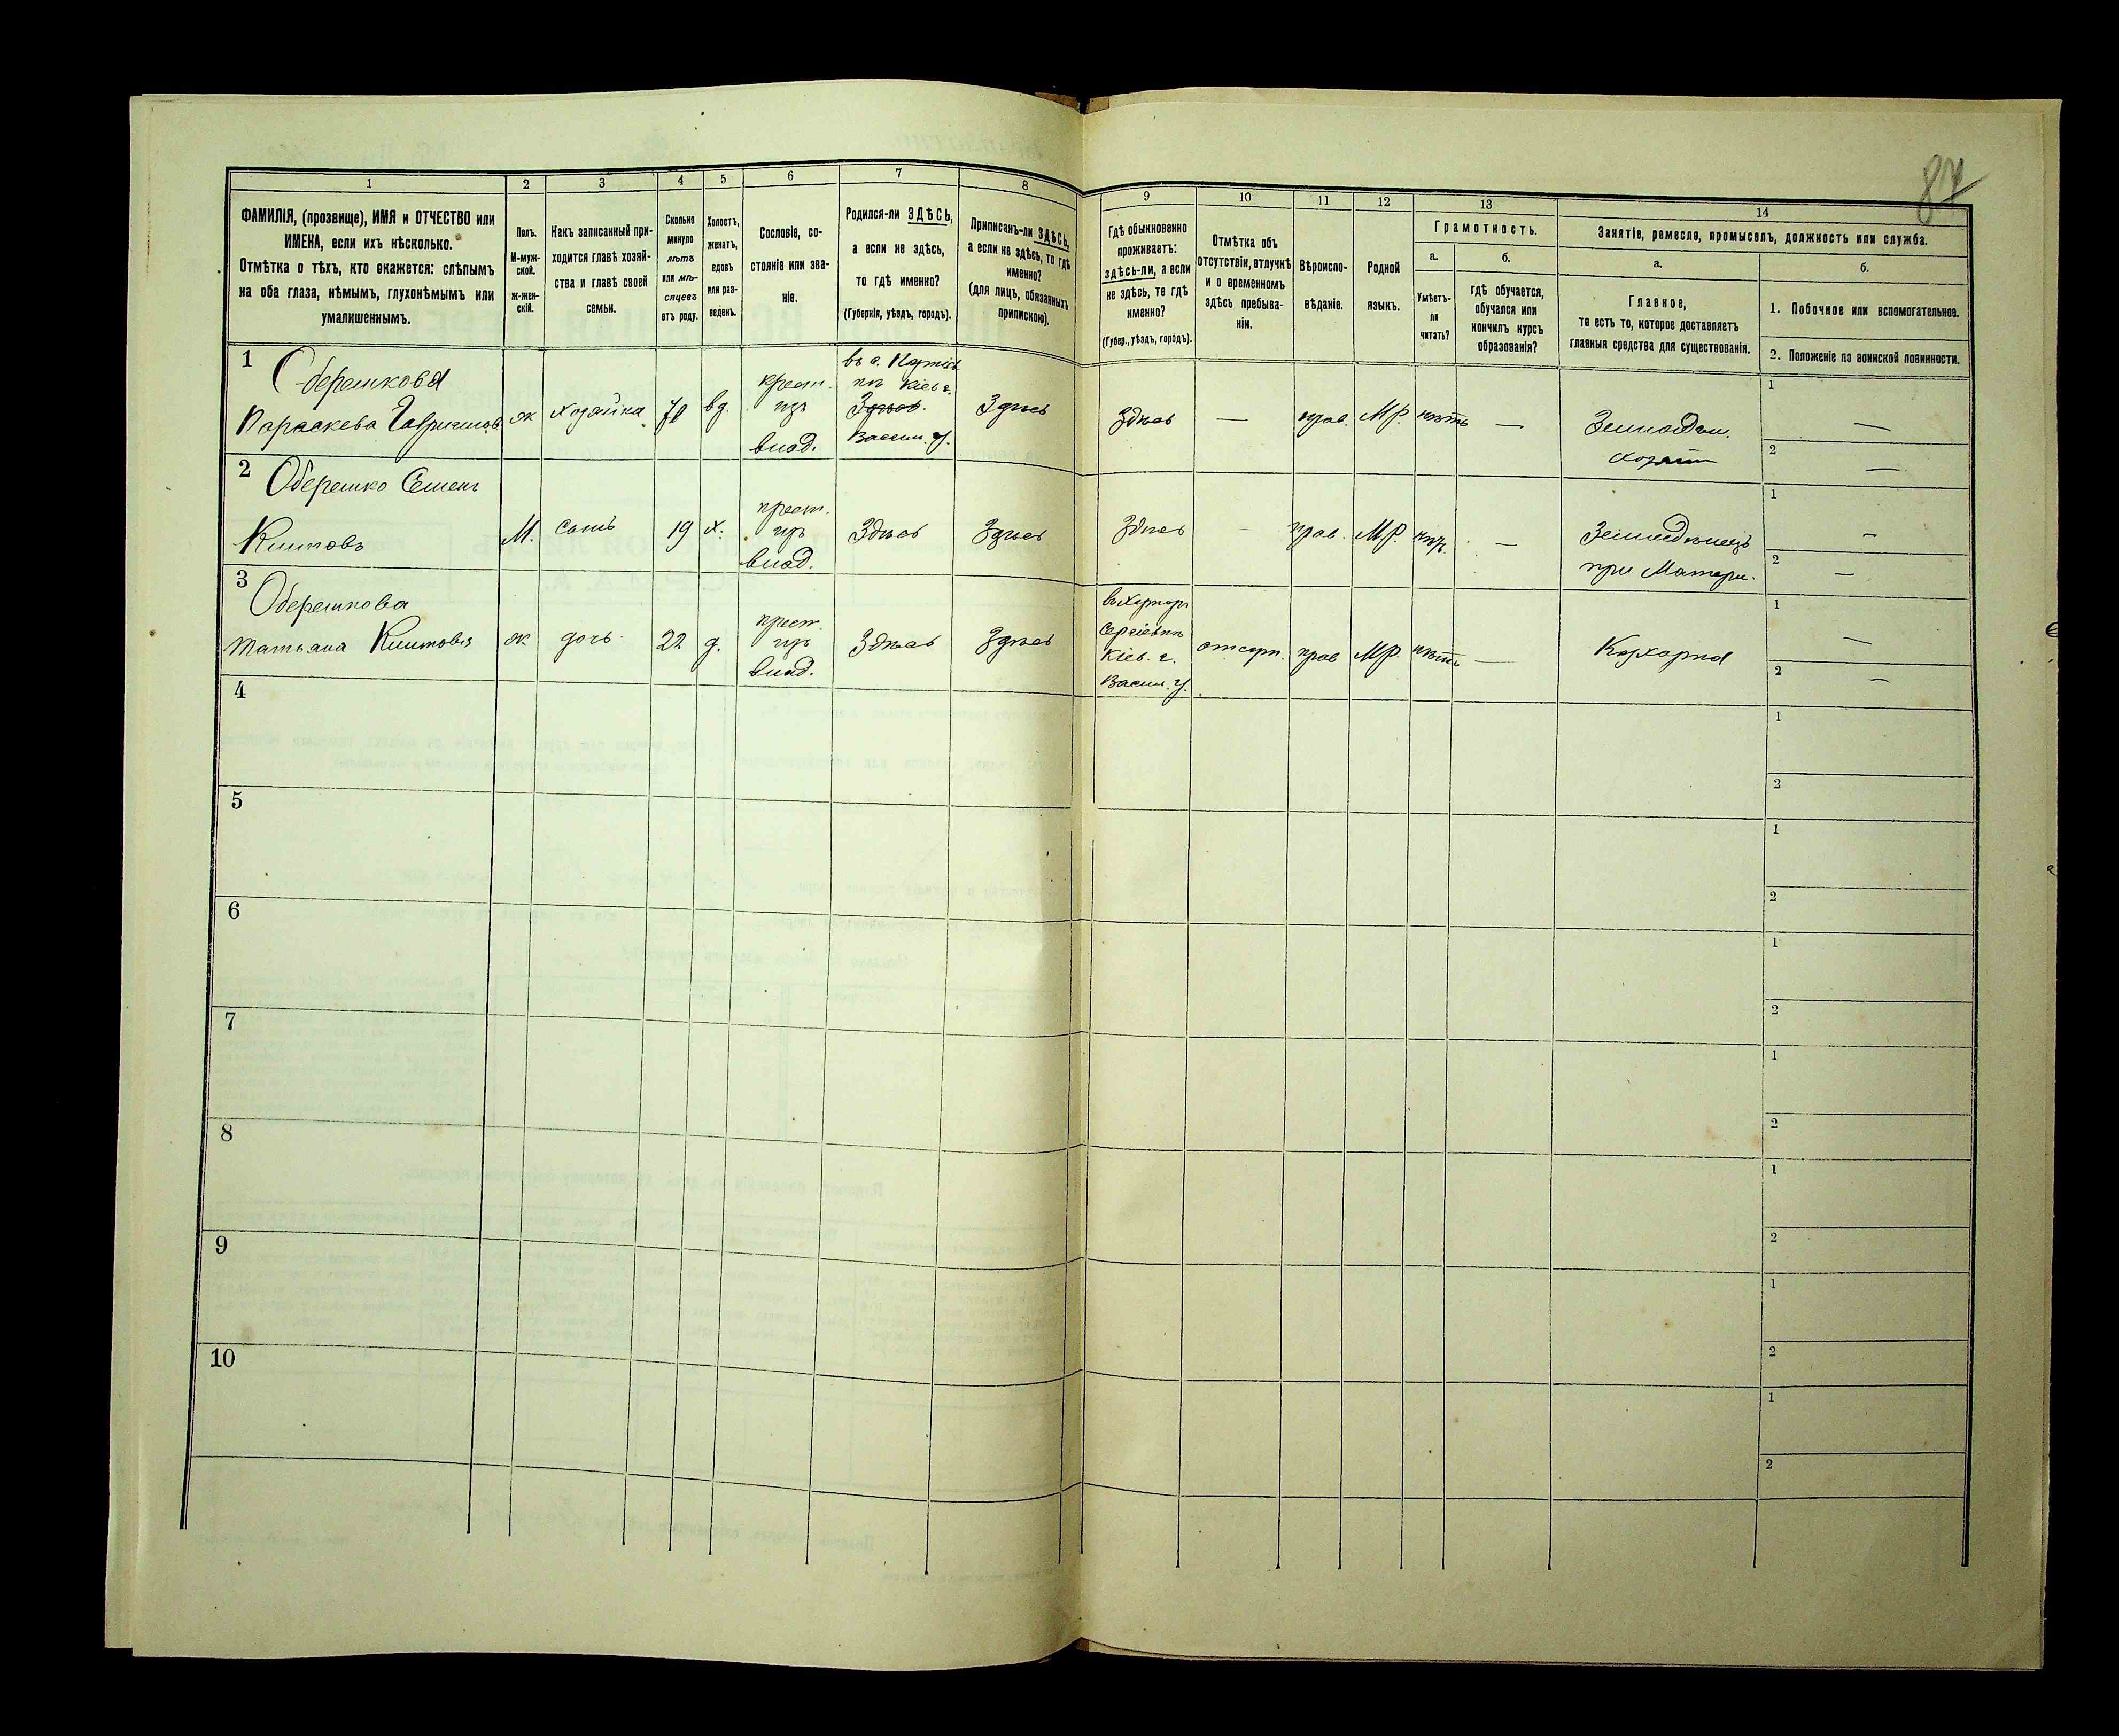 87
1
2
3
4
5
6
7
8
9
10
11
12
13
14
ФАМИЛІЯ, (прозвище), ИМЯ и ОТЧЕСТВО или
ИМЕНА, если ихъ нѣсколько.
Отмѣтка о тѣхъ, кто окажется: слѣпымъ
на оба глаза, нѣмымъ, глухонѣмымъ или
умалишеннымъ.
Полъ.
М-муж-
ской.
Ж-жен-
скій.
Какъ записанный при-
ходится главѣ хозяй-
ства и главѣ своей
семьи.
Сколько
минуло
лѣтъ
или мѣ-
сяцевъ
отъ роду.
Холостъ,
женатъ,
вдовъ
или раз-
веденъ.
Сословіе, со-
стояніе или зва-
ніе.
Родился-ли ЗДѢСЬ,
а если не здѣсь,
то гдѣ именно?
(Губернія, уѣздъ, городъ).
Приписанъ-ли ЗДѢСЬ,
а если не здѣсь, то гдѣ
именно?
(для лицъ, обязанныхъ
припискою).
Гдѣ обыкновенно
проживаетъ:
здѣсь-ли, а если
не здѣсь, то гдѣ
именно?
(Губер., уѣздъ, городъ).
Отмѣтка объ
отсутствіи, отлучкѣ
и о временномъ
здѣсь пребыва-
ніи.
Вѣроиспо-
вѣданіе.
Родной
языкъ.
Грамотность.
а.
Умѣетъ-
ли
читать?
б.
гдѣ обучается,
обучался или
кончилъ курсъ
образованія?
Занятіе, ремесло, промыселъ, должность или служба.
а.
Главное,
то есть то, которое доставляетъ
главныя средства для существованія.
б.
1. Побочное или вспомогательное.
2. Положеніе по воинской повинности.
1
Оберемкова
Параскева
ж
хозяйка
вд.
крест.
изъ
влад.
Кіев. г.
Здѣсь.
Васил. у.
Здѣсь
Здѣсь
—
прав.
М.Р.
нѣтъ
—
1 —
2 —
2 Оберемко Семенъ
Климовъ
М.
сынъ
19
х.
крест.
изъ
влад.
Здѣсь
Здѣсь
Здѣсь
—
прав.
М.Р.
—
Земледѣлецъ
при Матери.
1 —
2 —
3
Оберемкова
Татьяна Климова
ж
дочь
22
д.
крест.
изъ
влад.
Здѣсь
Здѣсь
Кіев. г.
Васил. у.
отсут.
прав
М.Р.
нѣтъ
—
Кухарка
1 —
2 —
4
1
2
5
1
2
6
1
2
7
1
2
8
1
2
9
1
2
10
1
2